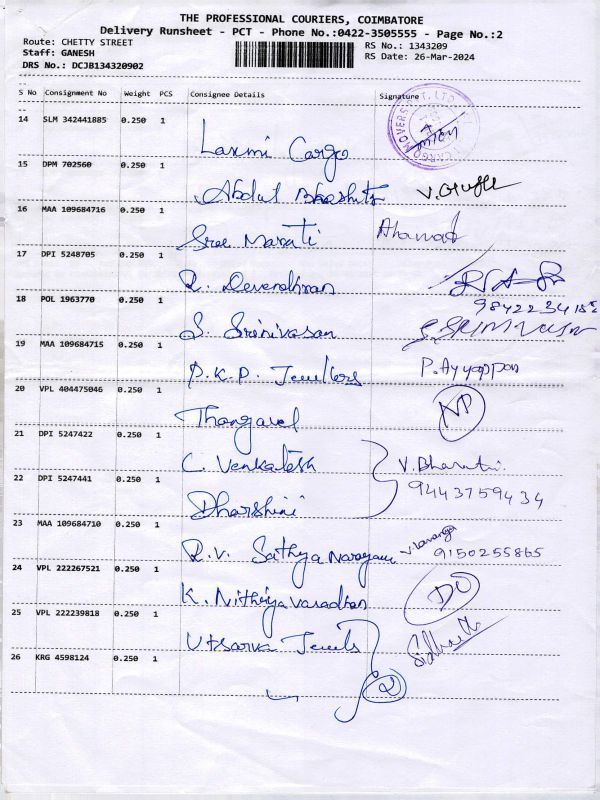 THE PROFESSIONAL COURIERS, COIMBATORE
Delivery Runsheet - PCT - Phone No.:0422-3505555 - Page No.:2
Route: CHETTY STREET
RS No.: 1343209
Staff: GANESH
RS Date: 26-Mar-2024
DRS No.: DCJB134320902
S No Consignment No Weight PCS Consignee Details Signature
14 SLM 342441885 0.250 1
Laxmi Cargo
15 DPM 702560 0.250 1
Abdul
16 MAA 109684716 0.250 1
Sree Maruti
17 DPI 5248705 0.250 1
R. Devendhran
18 POL 1963770 0.250 1
S. Srinivasan
19 MAA 109684715 0.250 1
P.K.P. Jewllers P. Ayyappan
20 VPL 404475046 0.250 1
Thangavel NP
21 DPI 5247422 0.250 1
C. Venkatesh V. Bharathi
22 DPI 5247441 0.250 1
9443759434
Dharshini
23 MAA 109684710 0.250 1
R.V. Sathya Narayanan 9150255865
24 VPL 222267521 0.250 1
K. Nithiya varadhan DO
25 VPL 222239818 0.250 1
Utsarva Jewels Sidharth
26 KRG 4598124 0.250 1
2